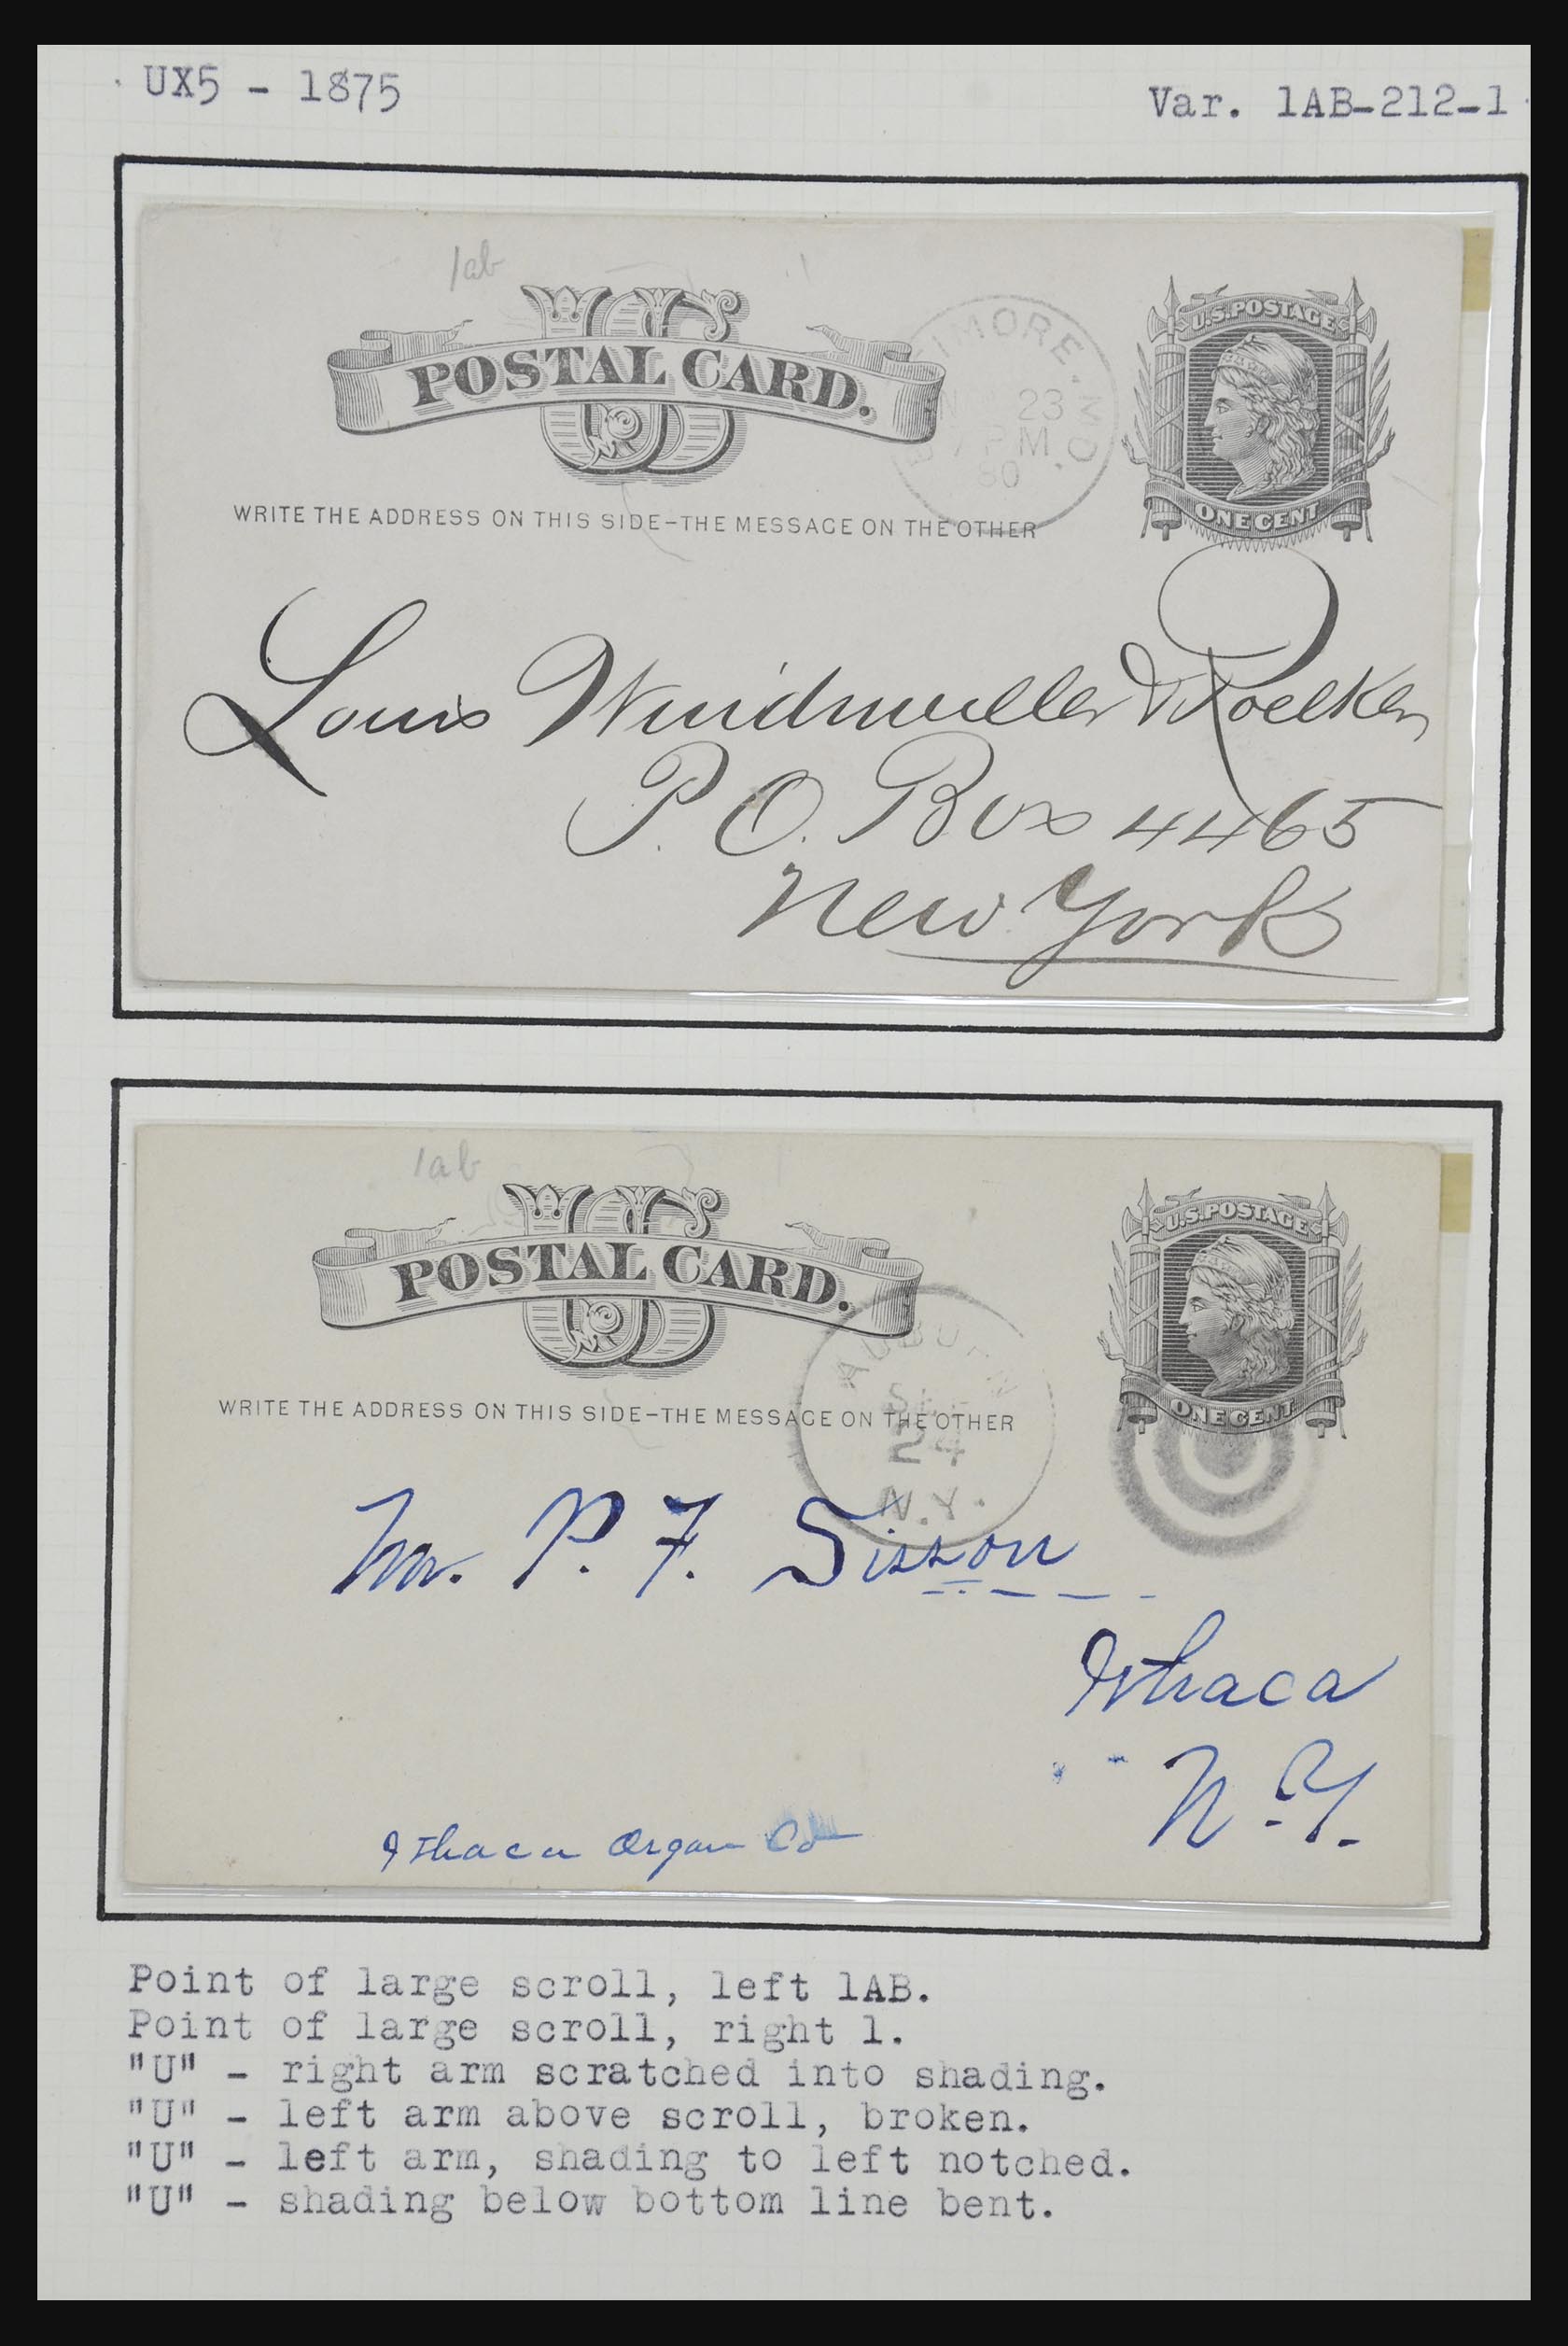 UX5 - 1875
Var. 1AB-212-1
1ab
U S
POSTAL CARD.
WRITE THE ADDRESS ON THIS SIDE-THE MESSAGE ON THE OTHER
IMORE. MD.
23
PM
80
U.S. POSTAGE
ONE CENT
Louis Windmuller & Roelker
P. O. Box 4465
New York
1ab
U S
POSTAL CARD.
WRITE THE ADDRESS ON THIS SIDE-THE MESSAGE ON THE OTHER
AUBURN
24
N.Y.
U.S. POSTAGE
ONE CENT
Mr. P. F. Sisson
Ithaca
N.Y.
Ithaca Organ Co
Point of large scroll, left 1AB.
Point of large scroll, right 1.
"U" - right arm scratched into shading.
"U" - left arm above scroll, broken.
"U" - left arm, shading to left notched.
"U" - shading below bottom line bent.